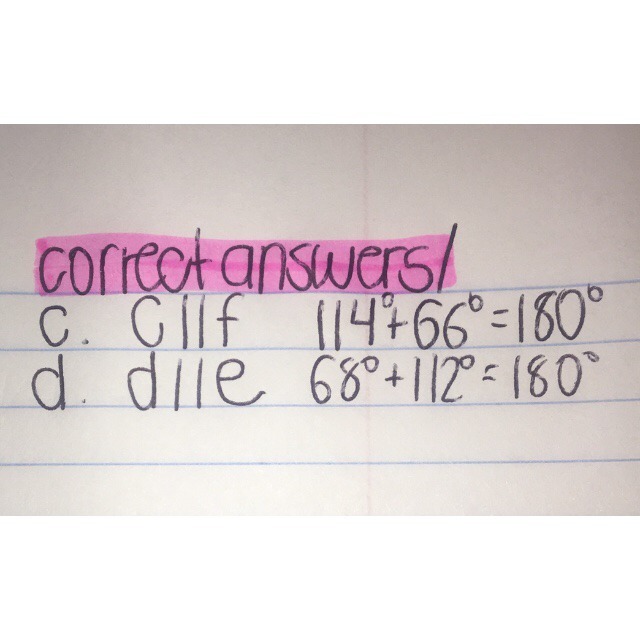 correct answers/
c. C||f 114°+66°=180°
d. d||e 68°+112°=180°